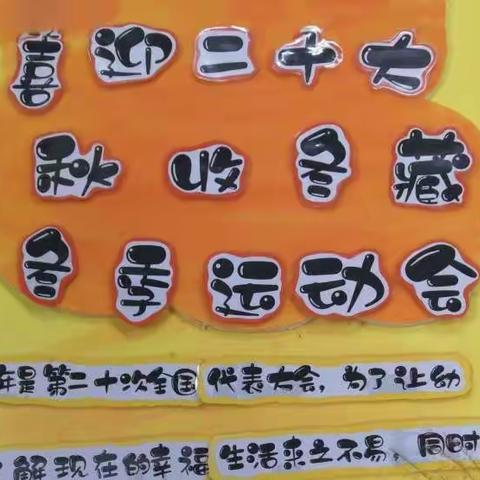 喜迎二十大
秋收冬藏
冬季运动会
年是第二十次全国代表大会，为了让幼
了解现在的幸福生活来之不易，同时